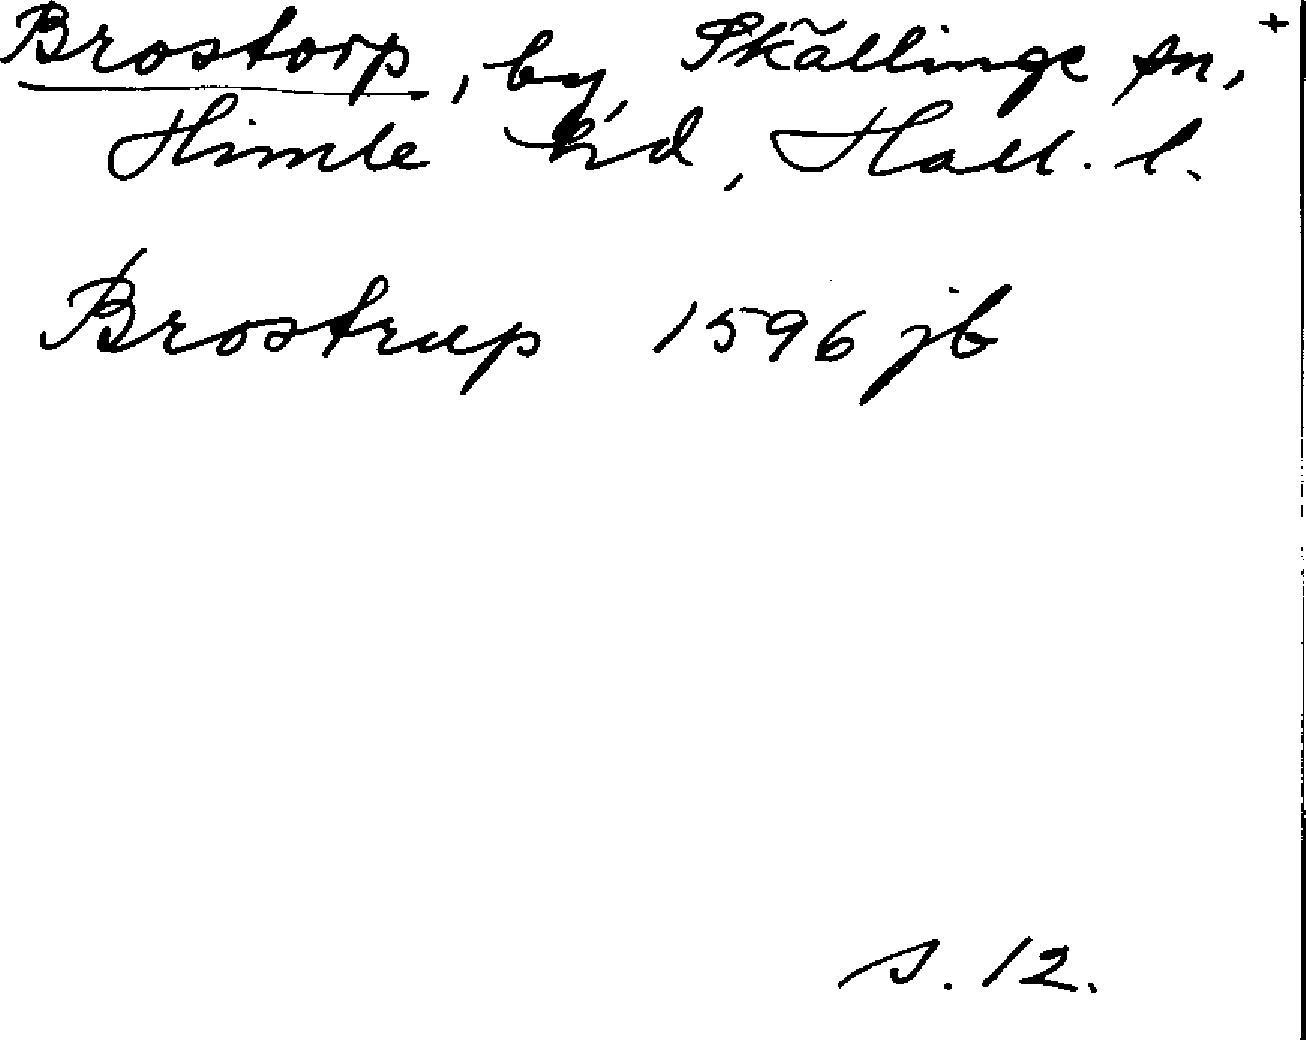 Brostorp, by, Skällinge sn, +
Himle hd, Hall. l.
Brostrup 1596 jb
s. 12.